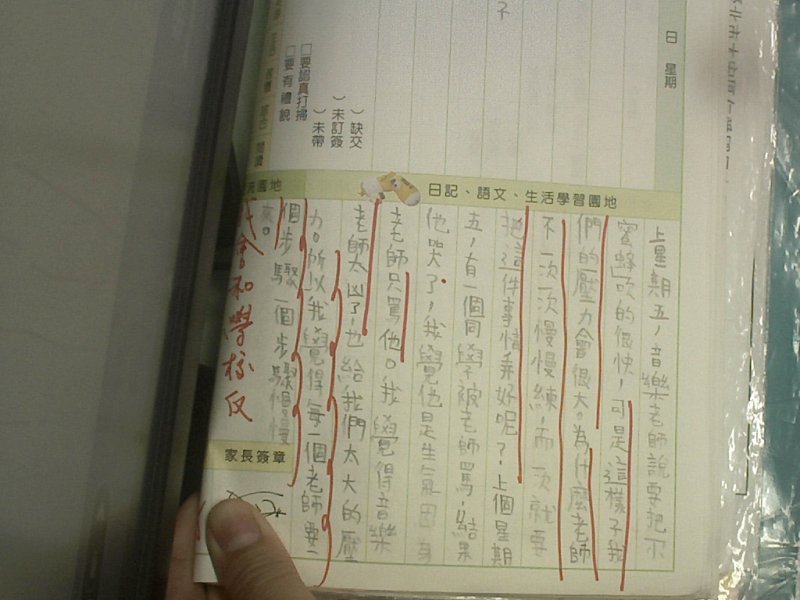 日 星期
不
）缺交
）未訂簽
）未帶
□要認真打掃
□要有禮貌
日記、語文、生活學習園地
園地
上星期五，音樂老師說要把不
蜜蜂吹的很快，可是這樣子我
們的壓力會很大。為什麼老師
不一次一次慢慢練，而一次就要
把這件事情弄好呢？上個星期
五，有一個同學被老師罵，結果
他哭了，我覺他也是生氣因
老師只罵他。我覺得音樂
老師太凶了，也給我們太大的壓
力。所以我覺得每一個老師要一
個步驟一個步驟慢慢
來。
會和學校反
家長簽章